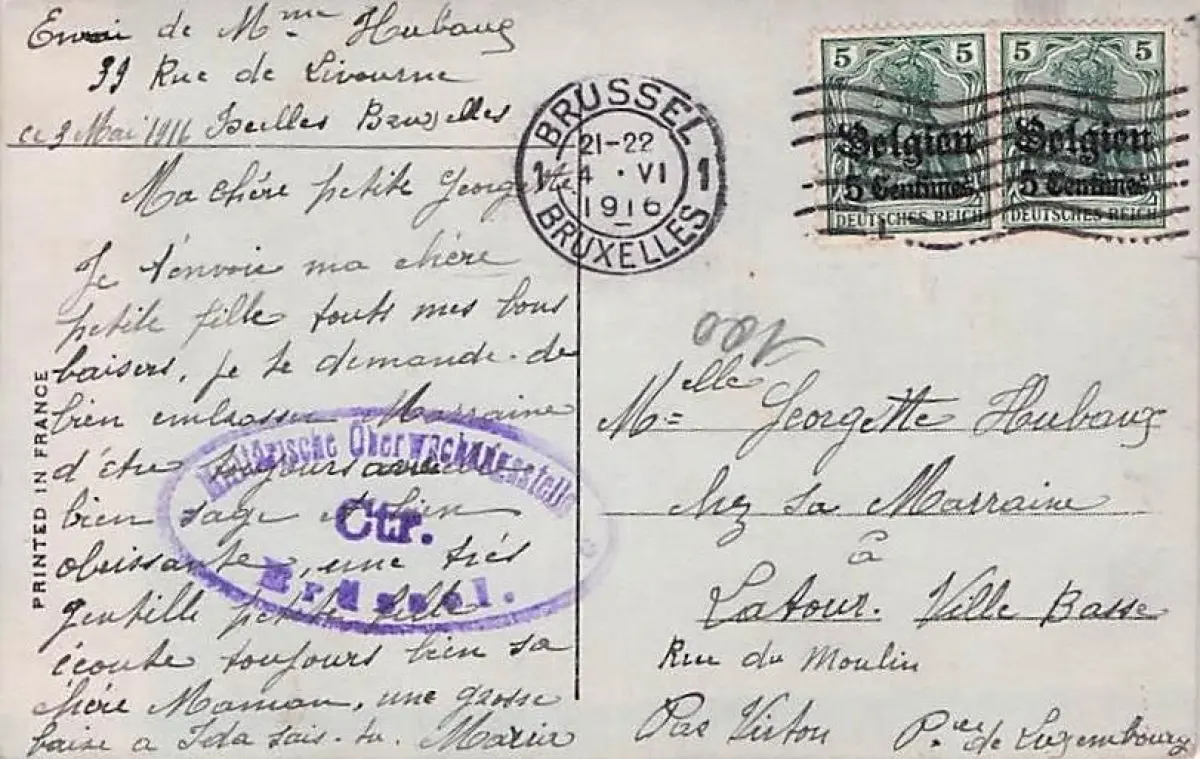 Envoi de Mme Hubaux
39 Rue de Livourne
ce 9 Mai 1916 Ixelles Bruxelles
Ma chère petite Georgette
Je t'envoie ma chère
petite fille touts mes bons
baisers, je te demande de
bien embrasser Marraine
d'être toujours
bien sage et bien
obeissante, une très
gentille petite fille
écoute toujours bien sa
chère Maman, une grosse
baise a Ida sais-tu. Maria
PRINTED IN FRANCE
Militärische Überwachungsstelle
Ctr.
Brüssel.
BRUSSEL
1 21-22 1
4 · VI
1916
BRUXELLES
5 5
Belgien
5 Centimes
DEUTSCHES REICH
5 5
Belgien
5 Centimes
DEUTSCHES REICH
100
Melle Georgette Hubaux
chez sa Marraine
à
Latour. Ville Basse
Rue du Moulin
Par Virton Pce de Luxembourg